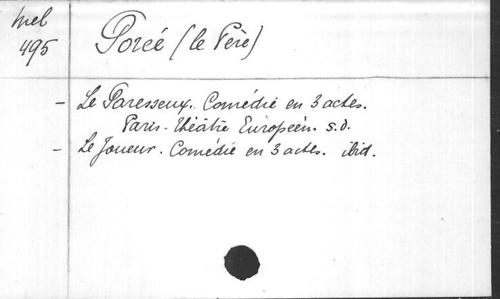 Mel
495
Porée (le Père)
- Le Paresseux. Comédie en 3 actes.
Paris. Théâtre Européen. s.d.
- Le Joueur. Comédie en 3 actes. ibid.